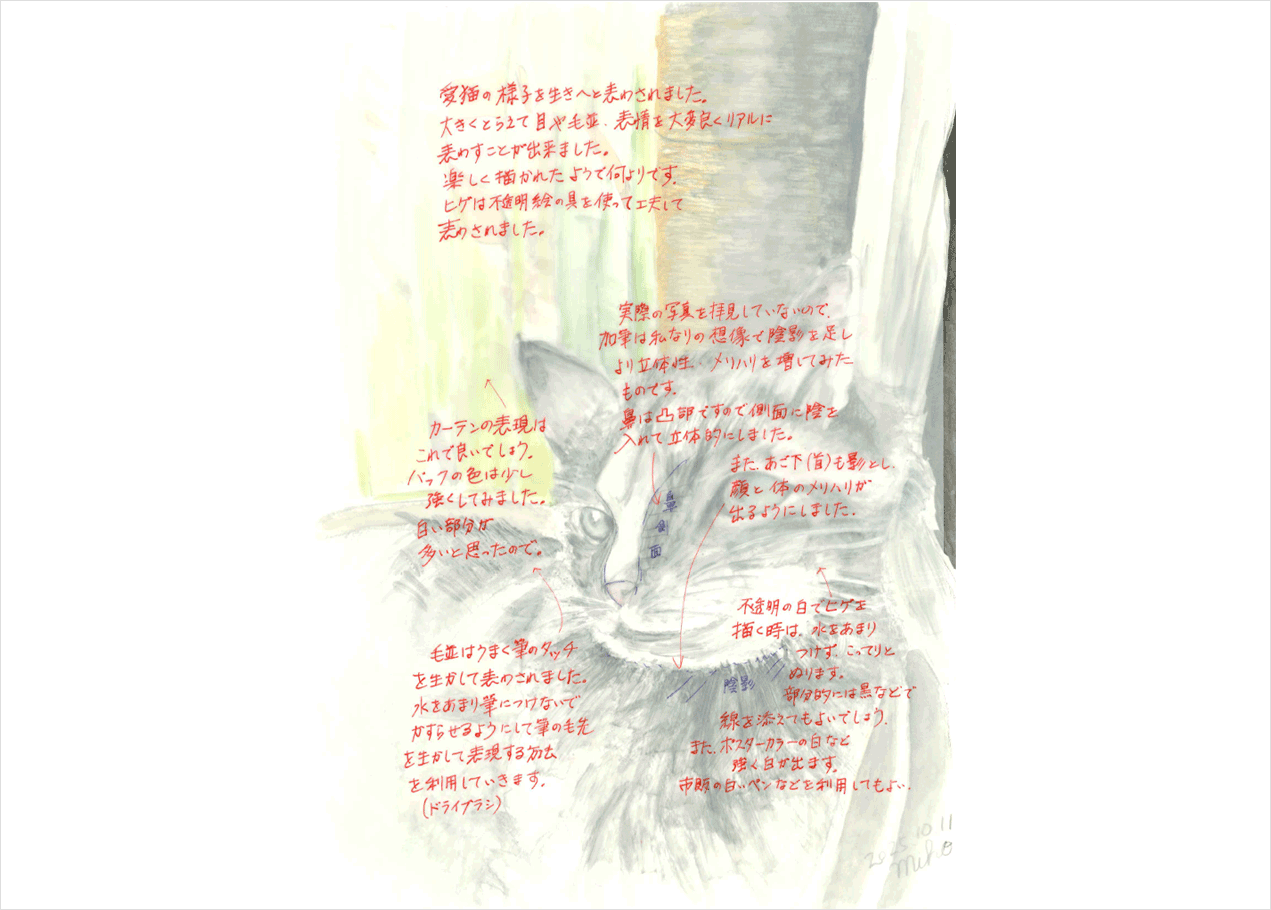 愛猫の様子を生き々と表わされました。
大きくとらえて目や毛並、表情を大変良くリアルに
表わすことが出来ました。
楽しく描かれたようで何よりです。
ヒゲは不透明絵の具を使って工夫して
表わされました。
実際の写真を拝見していないので、
加筆は私なりの想像で陰影を足し
より立体性、メリハリを増してみた
ものです。
鼻は凸部ですので側面に陰を
入れて立体的にしました。
カーテンの表現は
これで良いでしょう。
バックの色は少し
強くしてみました。
白い部分が
多いと思ったので。
また、あご下(首)も影とし、
顔と体のメリハリが
出るようにしました。
鼻
側
面
毛並はうまく筆のタッチ
を生かして表わされました。
水をあまり筆につけないで
かすらせるようにして筆の毛先
を生かして表現する方法
を利用していきます。
(ドライブラシ)
不透明の白でヒゲを
描く時は、水をあまり
つけず、こってりと
ぬります。
部分的には黒などで
線を添えてもよいでしょう。
また、ポスターカラーの白など
強く白が出ます。
市販の白いペンなどを利用してもよい。
陰影
2025 10 11